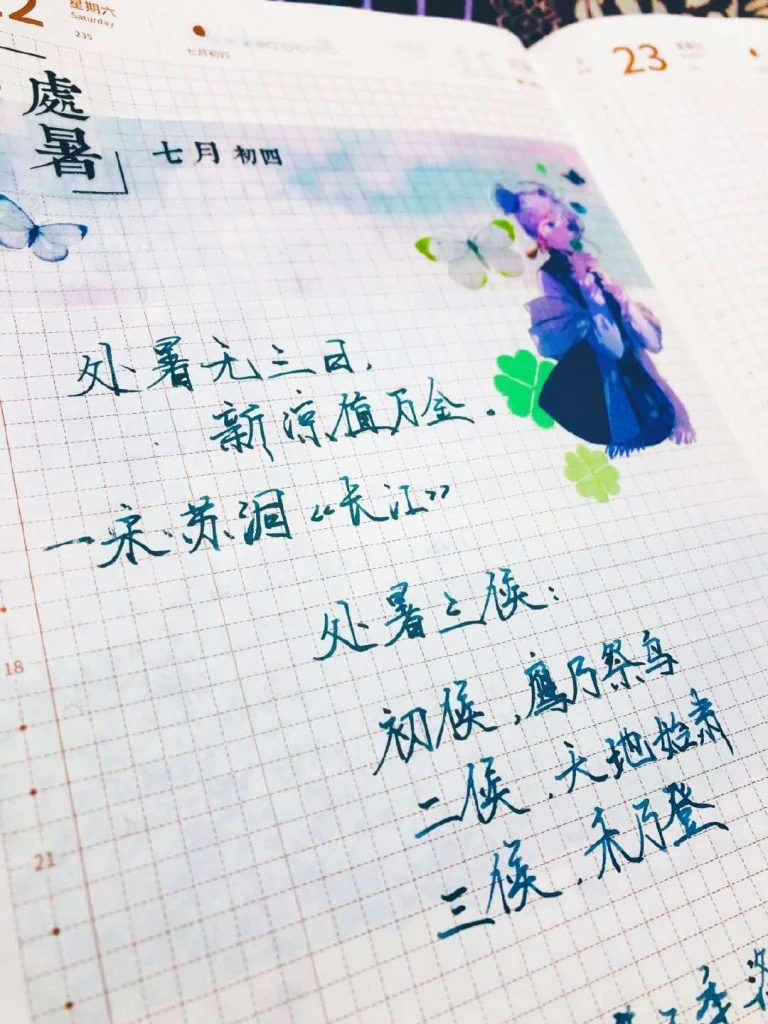 星期六
Saturday
235
七月初四
23
處暑
七月 初四
处暑无三日,
新凉值万金。
一宋·苏洞《长江》
处暑三候:
初候,鹰乃祭鸟
二候,天地始肃
三候,禾乃登
18
21